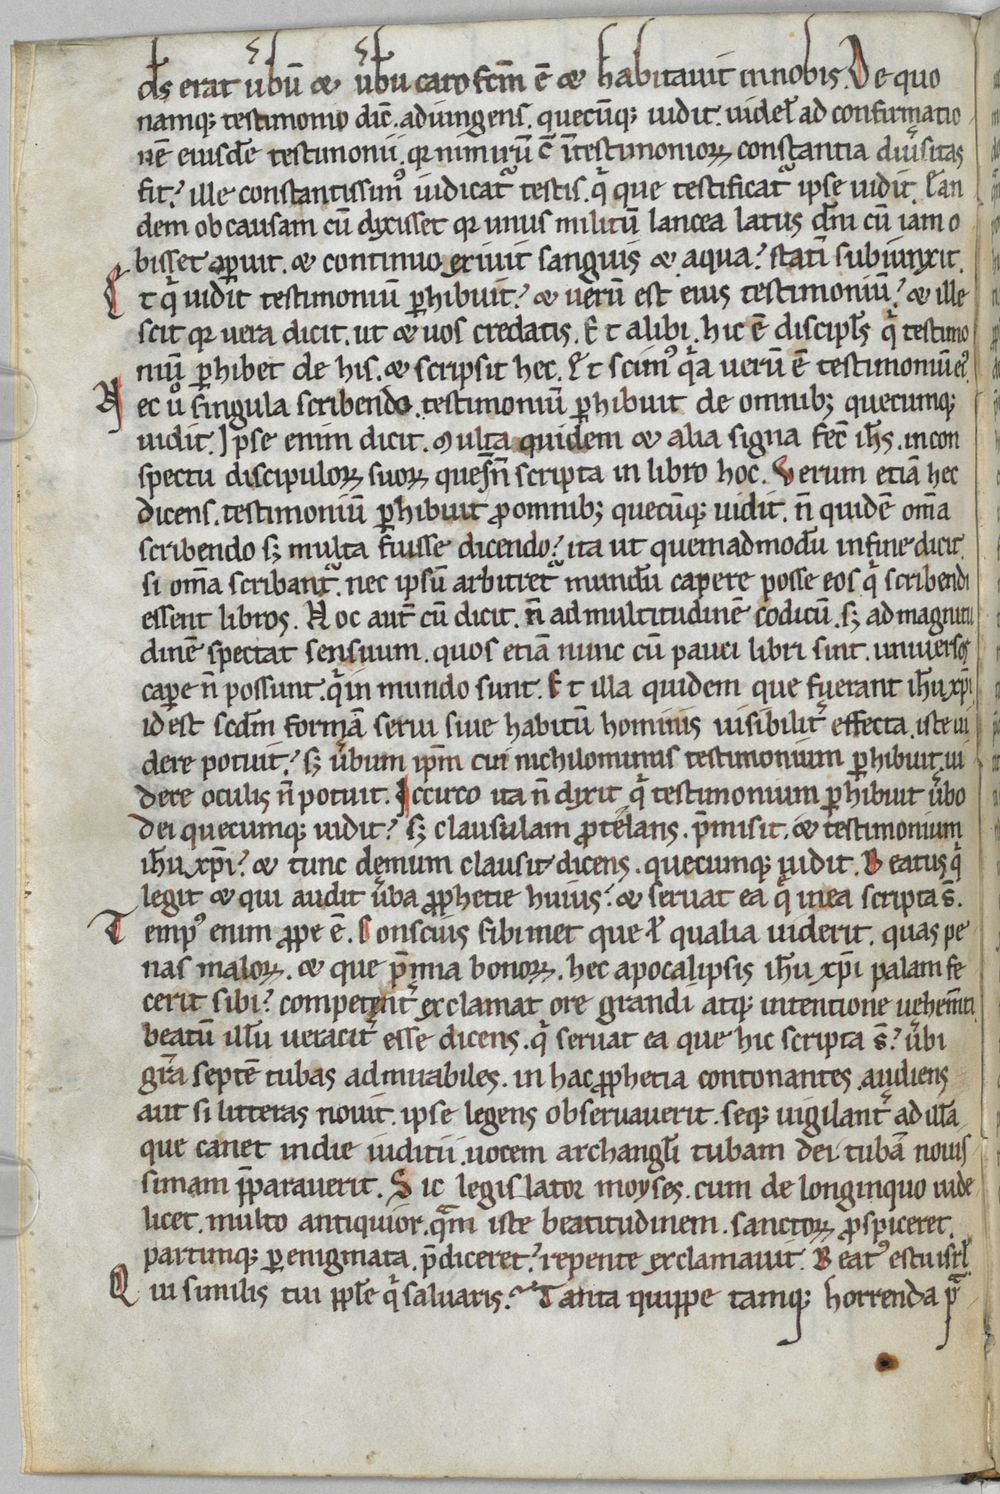 ds̄ erat ůbū & ůbu caro fcm̄ ē & habitauit in nobis. De quo
namq; testimonio dic̄. adiungens. quecūq; uidit. uidet̄ ad confirmatio
nē eiusdē testimonii. qr nimirū c̄ īn testimoniorꝝ constantia diuersitas
fit? ille constantissim᷒ iudicat᷑ testis. q̇ que testificat᷑ ipse uidit.
dem ob causam cū dixisset qr unus militū lancea latus dn̄i cū iam o
bisset apuit. & continuo exiuit sanguis & aqua? statī subiunxit.
Et q̇ uidit testimoniū ꝑhibuit? & uerū est eius testimoniū? & ille
scit qr uera dicit. ut & uos credatis. Et alibi. hic ē discipl̄s q̇ testimo
niū ꝑhibet de his. & scripsit hec. Et scim᷒ q̇a uerū ē testimoniū ei᷒.
Nec ů singula scribendo. testimoniū ꝑhibuit de omnib; quecumq;
uidit. Ipse enim dicit. Multa quidem & alia signa fec̄ ih̄s. in con
spectu discipulorꝝ suorꝝ que n̄ s̄ scripta in libro hoc. Verum etiā hec
dicens. testimoniū ꝑhibuit ꝓ omnib; quecūq; uidit. n̄ quidē om̄a
scribendo s; multa fuisse dicendo? ita ut quemadmodū in fine dicit.
si om̄a scribant᷑. nec ipsū arbitret᷑ mundū capere posse eos q̇ scribendi
essent libros. Hoc aut̄ cū dicit. n̄ ad multitudinē codicū. s; ad magnitu
dinē spectat sensuum. quos etiā nunc cū pauci libri sint. uniuersos
capere n̄ possunt. q̇ in mundo sunt. Et illa quidem que fuerant ih̄u xp̄i
id est scdm̄ formā serui siue habitū hominis uisibilit᷑ effecta. iste ui
dere potuit? s; ůbum ip̄m cui nichilominus testimonium ꝑhibuit. ui
dere oculis n̄ potuit. Iccirco ita n̄ dixit q̇ testimonium ꝑhibuit ůbo
dei quecumq; uidit? s; clausulam ꝓtelans. p̄misit. & testimonium
ih̄u xp̄i? & tunc demum clausit dicens. quecumq; uidit. Beatus q̇
legit & qui audit ůba ꝓphetie huius? & seruat ea q̇ in ea scripta s̄.
Temp᷒ enim ꝓpe ē. Conscius sibimet que ł qualia uiderit. quas pe
nas malorꝝ. & que p̄mia bonorꝝ. hec apocalipsis ih̄u xp̄i palam fe
cerit sibi? competent᷑ exclamat ore grandi atq; intentione uehem̄ti
beatū illū ueracit᷑ esse dicens. q̇ seruat ea que hic scripta s̄? ůbi
gr̄a septē tubas admirabiles. in hac ꝓphetia contonantes audiens
aut si litteras nouit. ipse legens obseruauerit. seq; uigilant᷑ ad illā
que canet in die iuditii. uocem archangl̄i tubam dei tubā nouis
simam p̄parauerit. Sic legislator moyses. cum de longinquo uide
licet. multo antiquior. qm̄ iste beatitudinem. sanctorꝝ ꝓspiceret.
partimq; ꝑ enigmata. p̄diceret? repente exclamauit. Beat᷒ es tu isrl̄
Quis similis tui ppl̄e q̇ saluaris. Tanta quippe tamq; horrenda